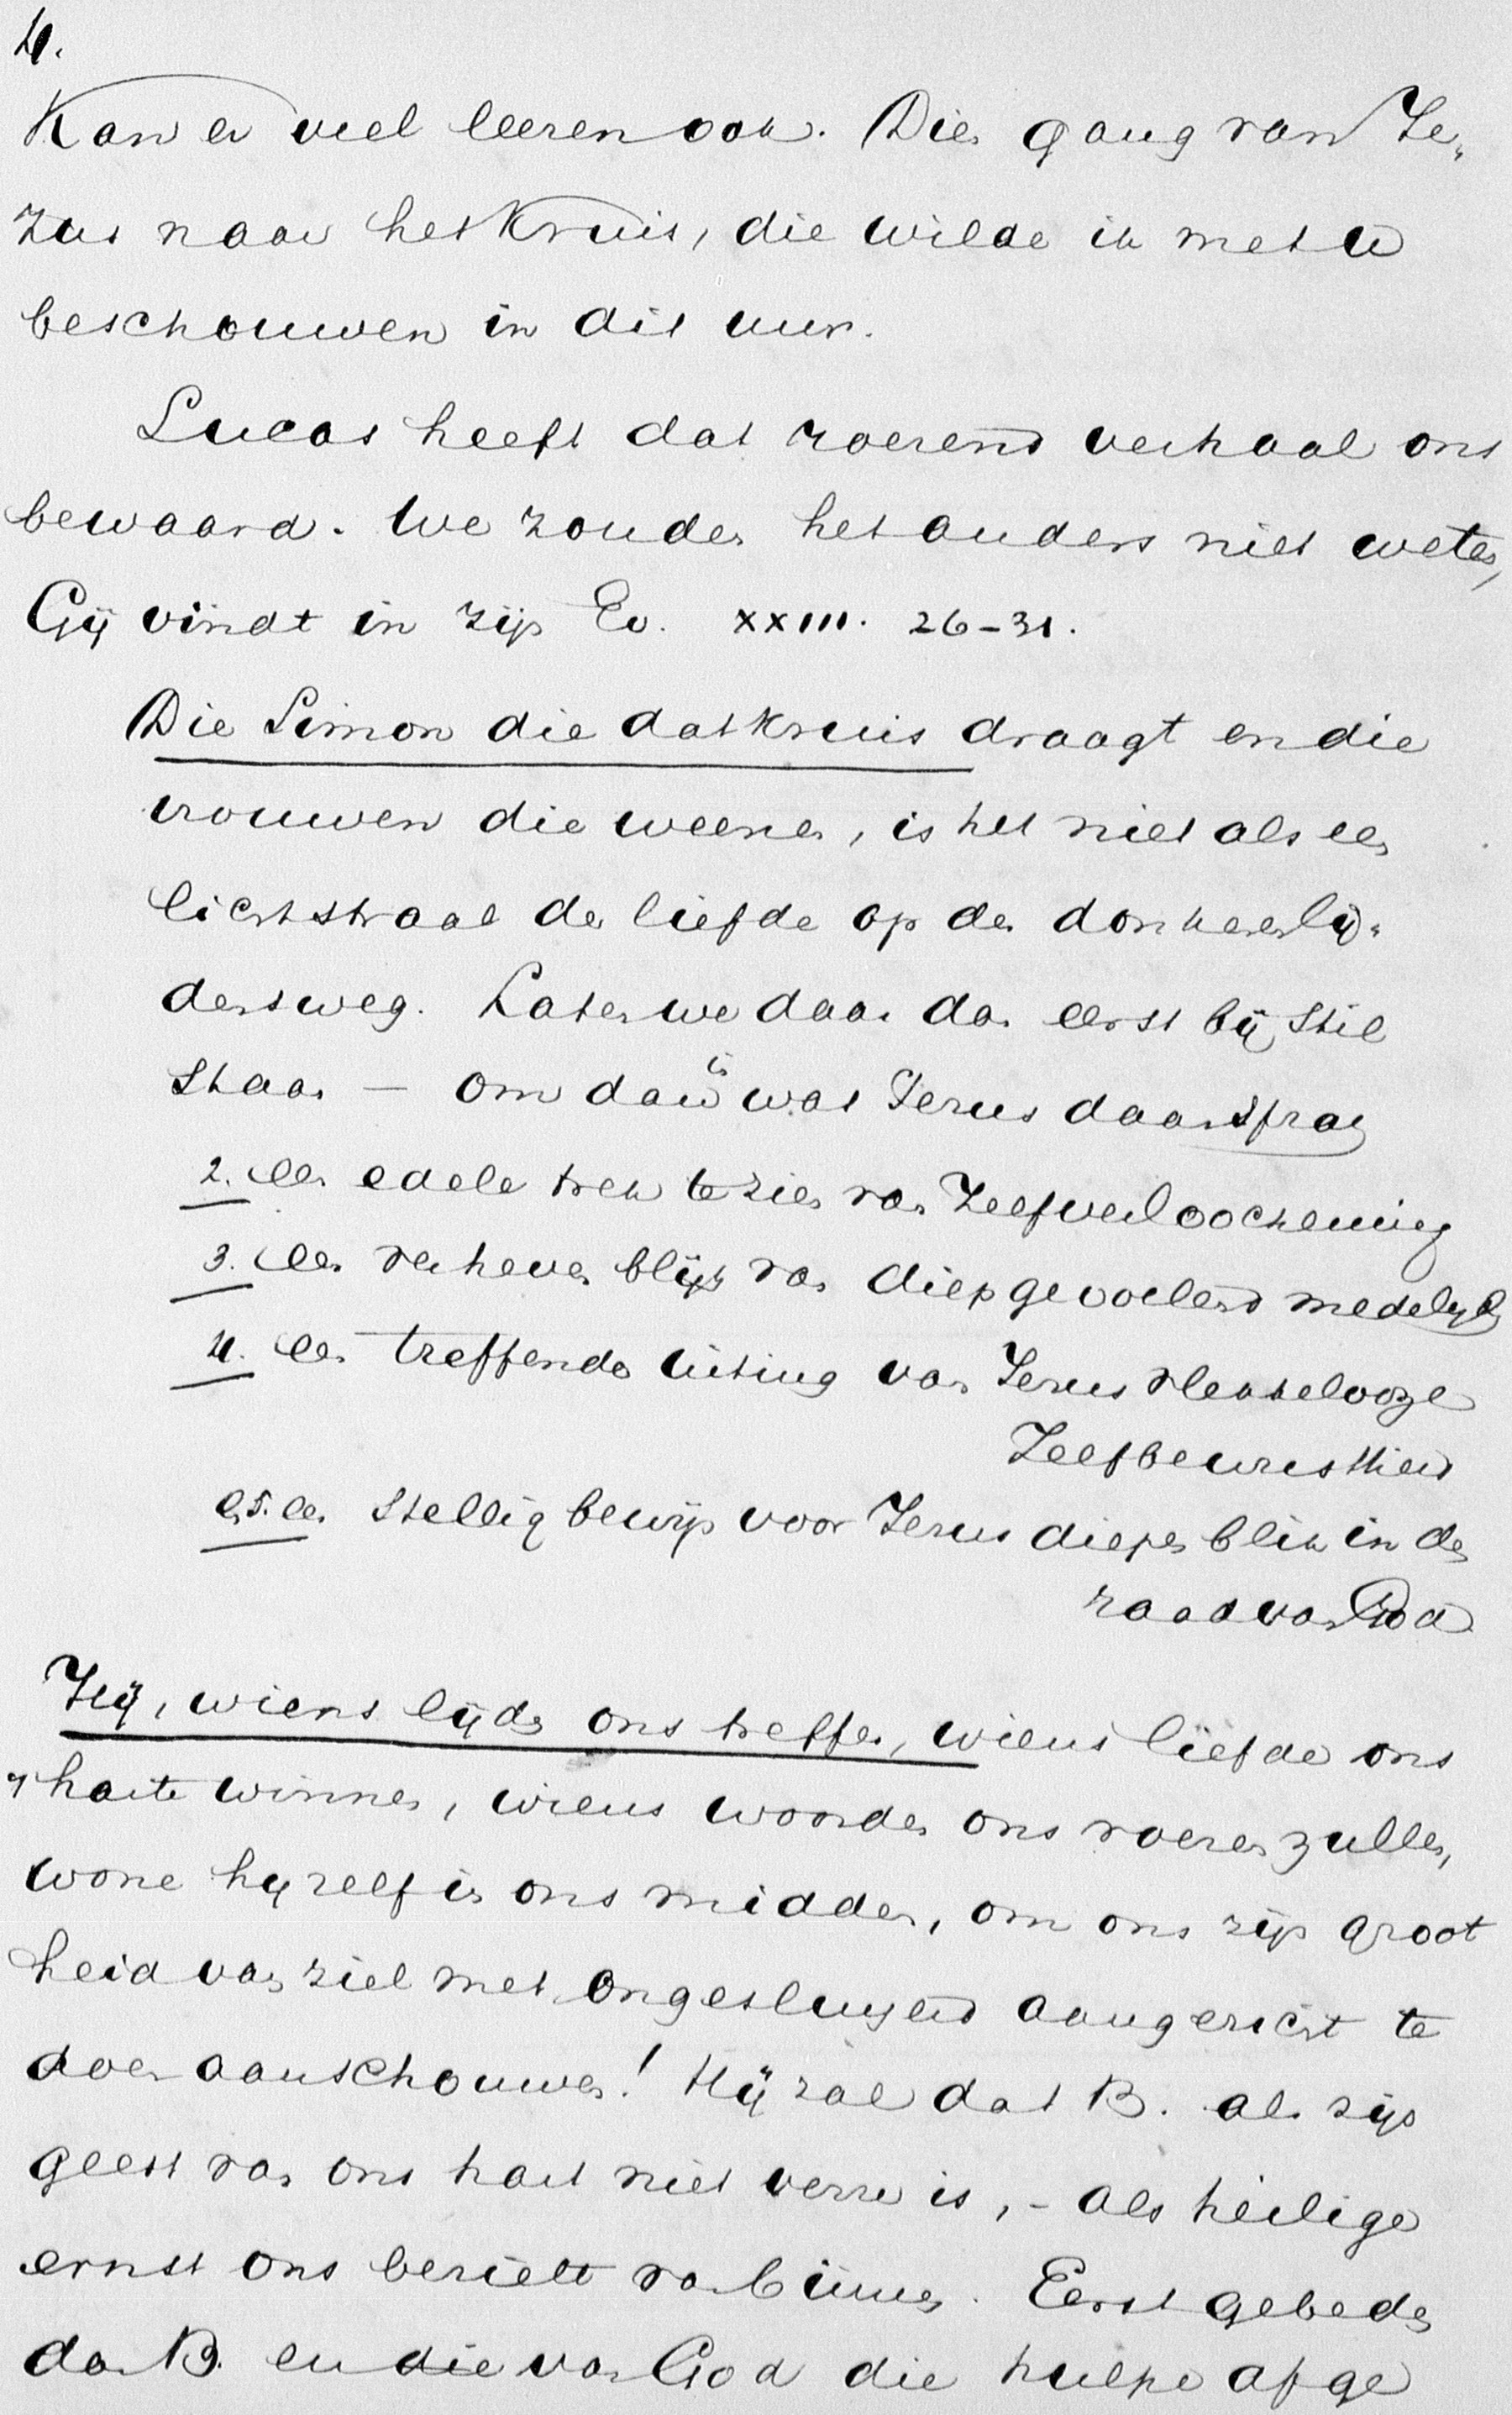 4.
Kan er veel leeren ook. Dien gang van Je„
zus naar het Kruis, die wilde ik met u
beschouwen in dit uur.
Lucas heeft dat roerend verhaal ons
bewaard. We zouden het anders niet weten,
Gij vindt in zijn Ev. XXIII. 26-31.
Die Simon die dat kruis draagt en die
vrouwen die weenen, is het niet als een
lichtstraal der liefde op den donkeren lij„
densweg. Laten we daar dan eerst bij stil
staan — om dan in wat Jezus daar sprak
2. een edele trek te zien van Zelfverloochening
3. een verheven blijk van diepgevoelend medelijden
4. een treffende uiting van Jezus vlekkelooze
Zelfbewustheid
en 5. een stellig bewijs voor Jezus diepen blik in den
raad van God
Hij, wiens lijden ons treffen, wiens liefde ons
't harte winnen, wiens woorden ons roeren zullen,
wone hij zelf in ons midden, om ons zijn groot
heid van ziel met ongesluyerd aangezicht te
doen aanschouwen! Hij zal dat B. als zijn
geest van ons hart niet verre is, - als heilige
ernst ons bezielt van binnen. Eerst gebeden
dan B. en die van God die hulpe afge